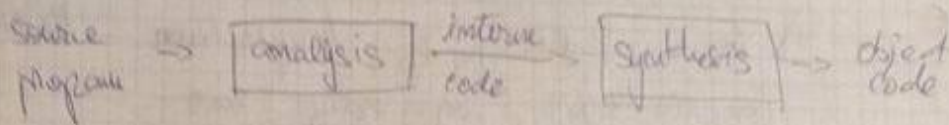 source program => analysis interm code -> synthesis -> object code